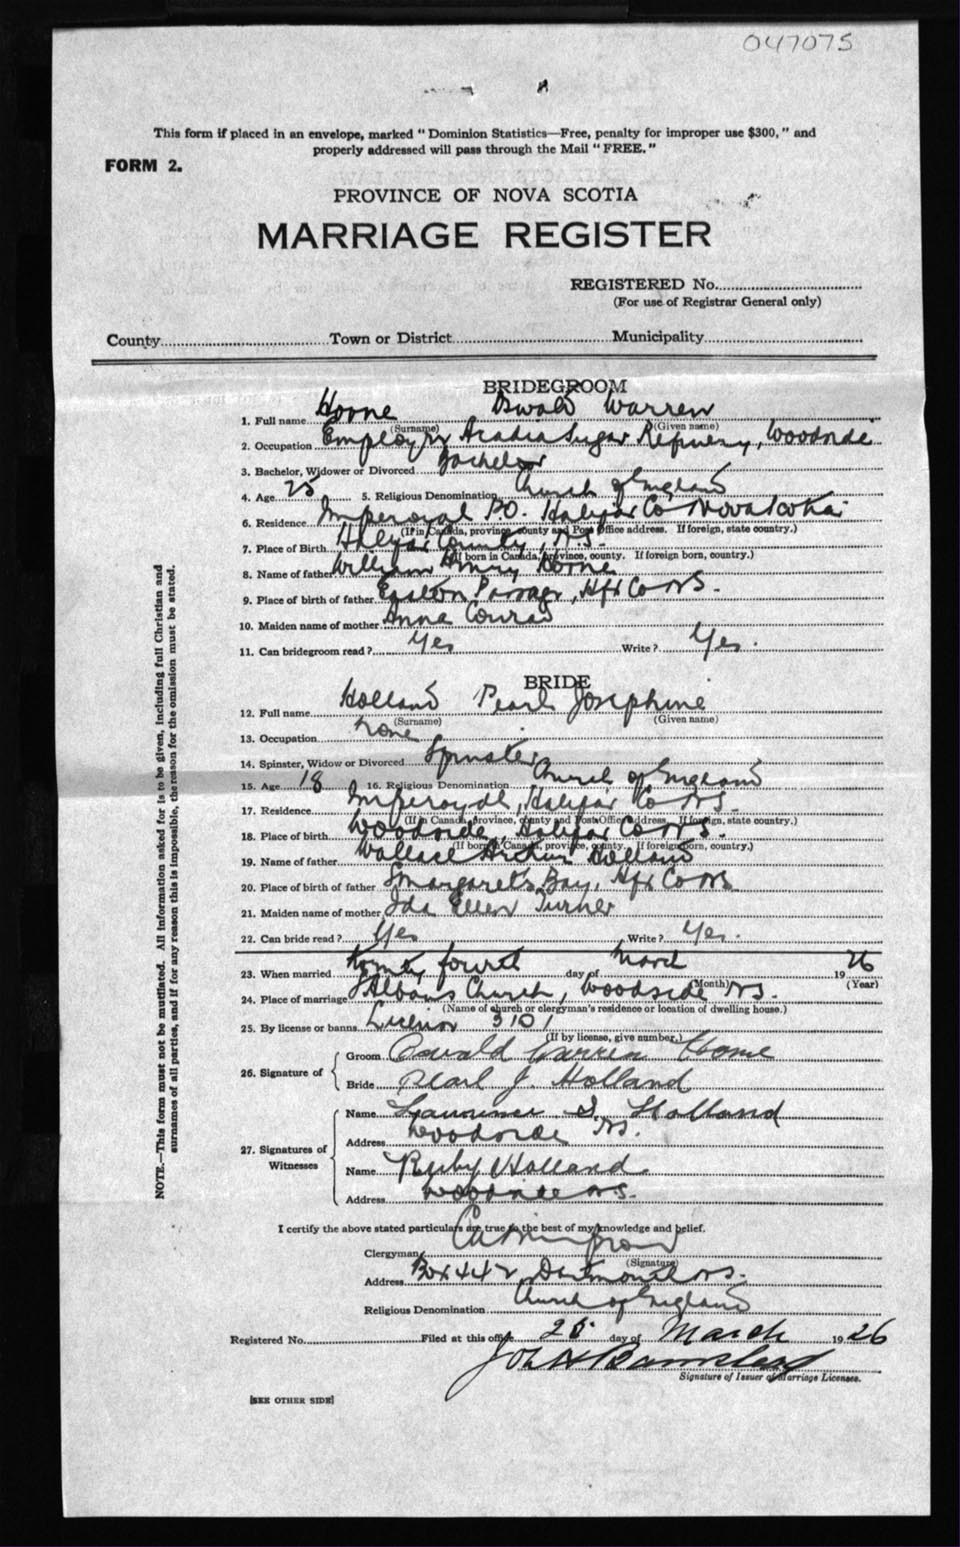 047075
This form if placed in an envelope, marked "Dominion Statistics—Free, penalty for improper use $300," and
properly addressed will pass through the Mail "FREE."
FORM 2.
PROVINCE OF NOVA SCOTIA
MARRIAGE REGISTER
REGISTERED No.
(For use of Registrar General only)
County Town or District Municipality
BRIDEGROOM
1. Full name Horne Oswald Warren
(Surname) (Given name)
2. Occupation Employ Acadia Sugar Refinery, Woodside
3. Bachelor, Widower or Divorced Bachelor
4. Age 25 5. Religious Denomination Church of England
6. Residence Imperoyal P.O. Halifax Co Nova Scotia
(If in Canada, province, county and Post Office address. If foreign, state country.)
7. Place of Birth Halifax County, N.S.
(If born in Canada, province, county. If foreign born, country.)
8. Name of father William Henry Horne
9. Place of birth of father Eastern Passage, Hfx Co NS.
10. Maiden name of mother Anna Conrad
11. Can bridegroom read? Yes Write? Yes.
BRIDE
12. Full name Holland Pearl Josephine
(Surname) (Given name)
13. Occupation none
14. Spinster, Widow or Divorced Spinster
15. Age 18 16. Religious Denomination Church of England
17. Residence Imperoyal, Halifax Co NS.
(If in Canada, province, county and Post Office address. If foreign, state country.)
18. Place of birth Woodside, Halifax Co NS.
(If born in Canada, province, county. If foreign born, country.)
19. Name of father Wallace Arthur Holland
20. Place of birth of father St Margarets Bay, Hfx Co NS
21. Maiden name of mother Ida Ellen Turner
22. Can bride read? Yes Write? Yes.
23. When married Twenty fourth day of March 1926
(Month) (Year)
24. Place of marriage St Albans Church, Woodside NS.
(Name of church or clergyman's residence or location of dwelling house.)
25. By license or banns License 3101
(If by license, give number.)
26. Signature of
Groom Oswald Warren Horne
Bride Pearl J. Holland
27. Signatures of Witnesses
Name Holland
Address Woodside NS.
Name Ruby Holland
Address Woodside NS.
I certify the above stated particulars are true to the best of my knowledge and belief.
Clergyman
(Signature)
Address Box 442 Dartmouth NS.
Religious Denomination Church of England
Registered No. Filed at this office 25 day of March 1926
Signature of Issuer of Marriage Licenses.
[SEE OTHER SIDE]
NOTE.—This form must not be mutilated. All information asked for is to be given, including full Christian and
surnames of all parties, and if for any reason this is impossible, the reason for the omission must be stated.